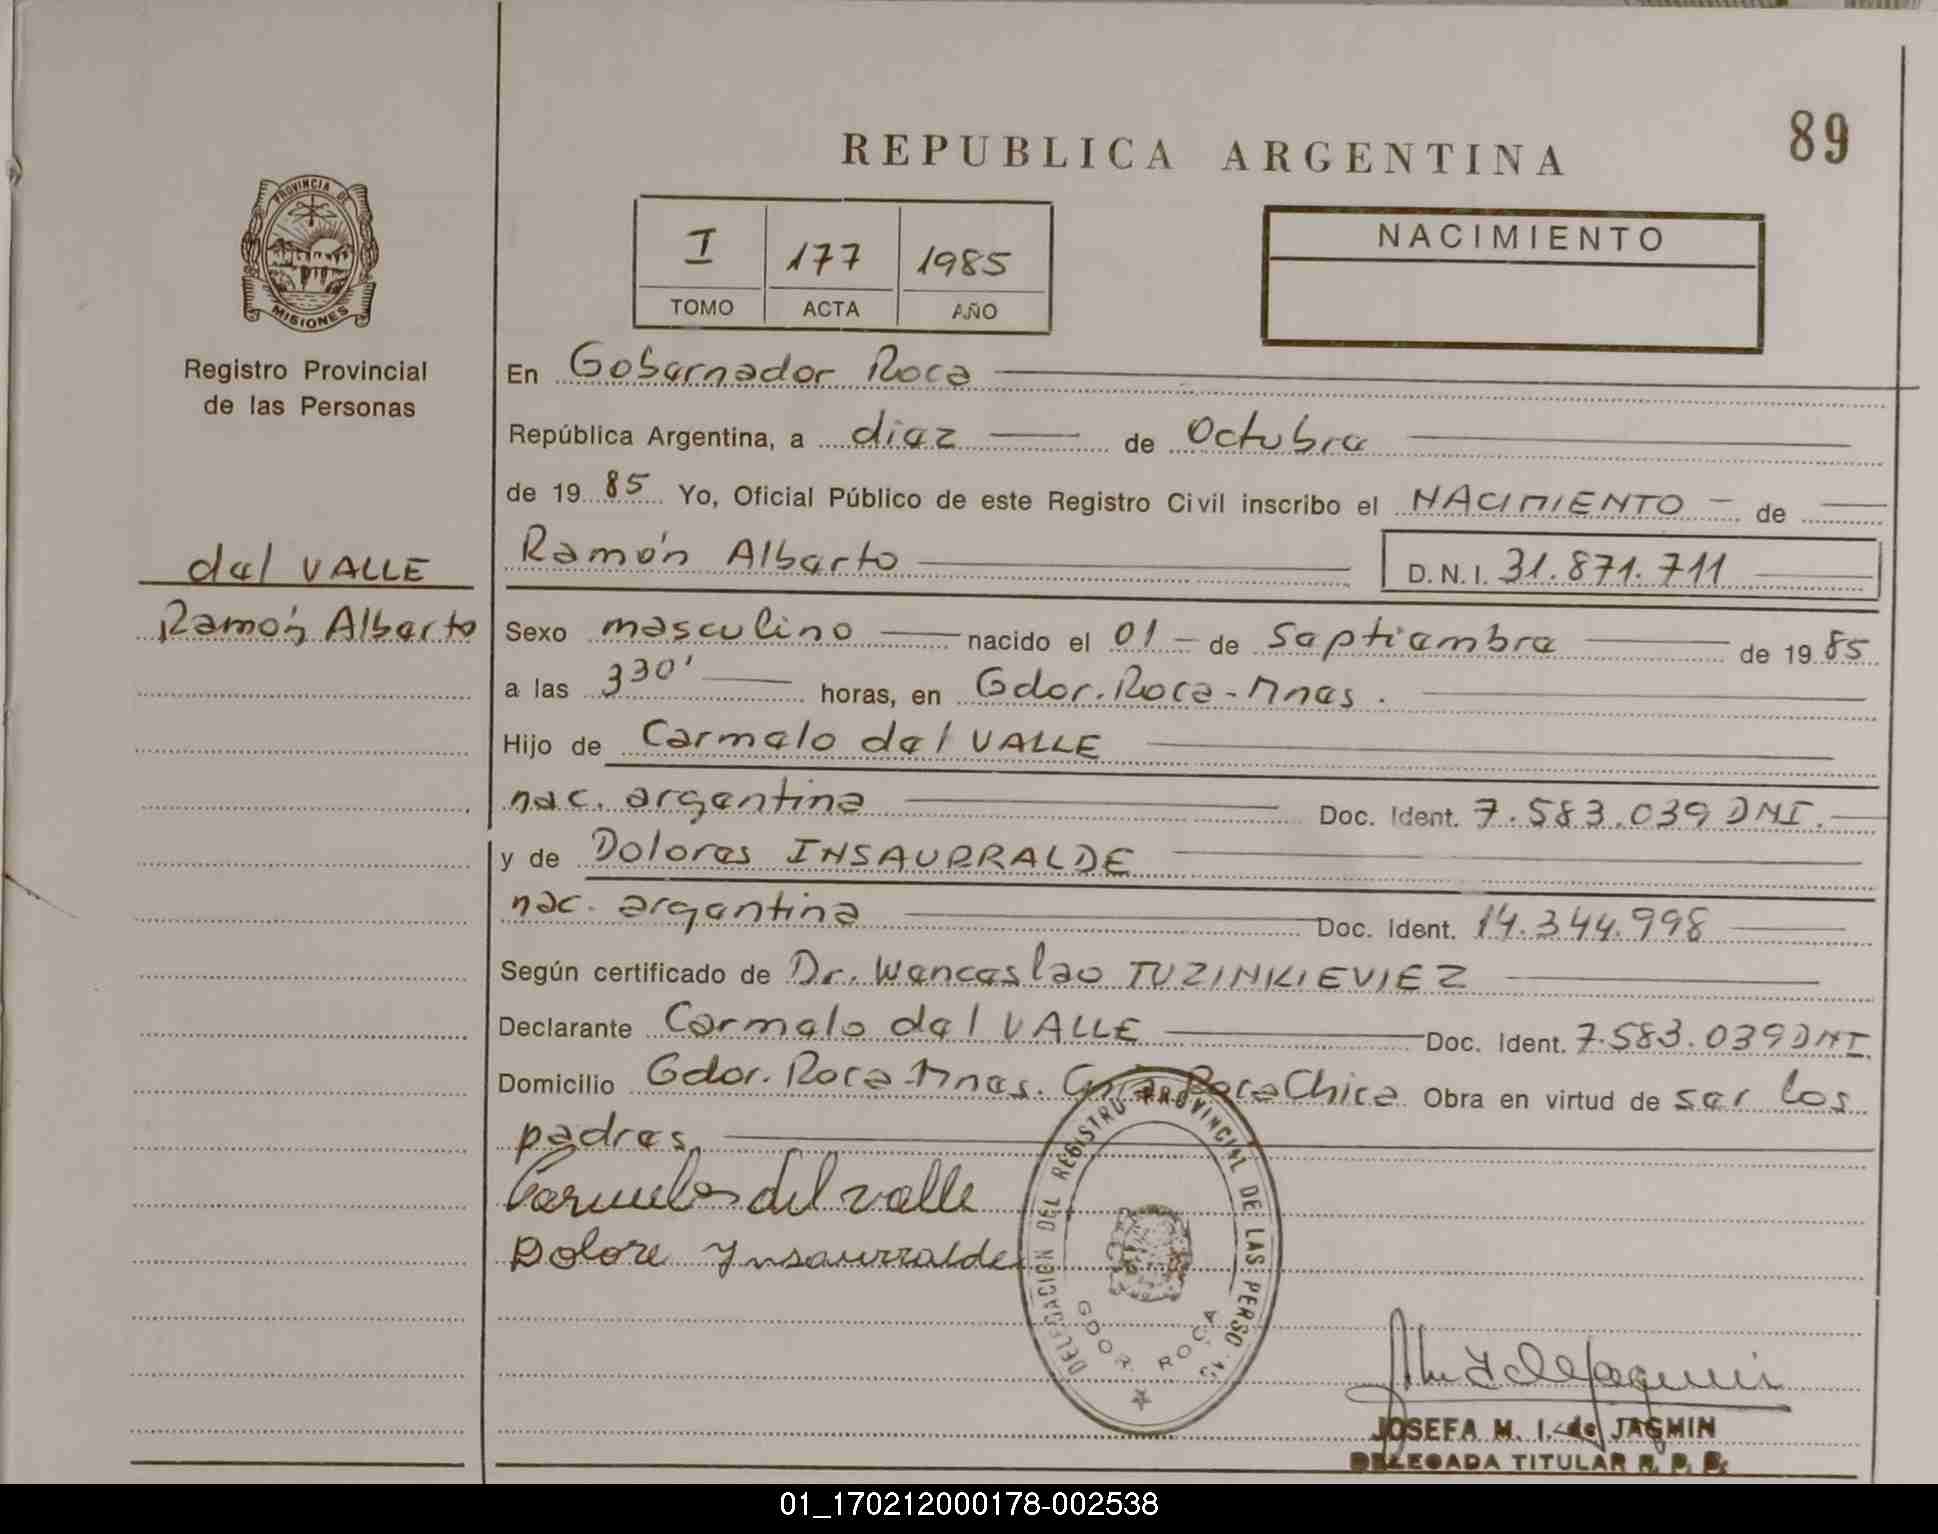 89
REPUBLICA ARGENTINA
PROVINCIA DE
MISIONES
Registro Provincial
de las Personas
I 177 1985
TOMO ACTA AÑO
NACIMIENTO
En Gobernador Roca
República Argentina, a diez de Octubre
de 1985 Yo, Oficial Público de este Registro Civil inscribo el NACIMIENTO de
del VALLE
Ramón Alberto
Ramón Alberto D.N.I. 31.871.711
Sexo masculino nacido el 01 de Septiembre de 1985
a las 330' horas, en Gdor. Roca-Mnes.
Hijo de Carmelo del VALLE
nac. argentina Doc. Ident. 7.583.039 DNI.
y de Dolores INSAURRALDE
nac. argentina Doc. Ident. 14.344.998
Según certificado de Dr. Wenceslao TUZINKIEVIEZ
Declarante Carmelo del VALLE Doc. Ident. 7.583.039 DNI.
Domicilio Gdor. Roca-Mnes. Roca Chica Obra en virtud de ser los
padres
Carmelo del valle
Dolore Ynsaurralde
DELEGACION DEL REGISTRO PROVINCIAL DE LAS PERSONAS
GDOR. ROCA
JOSEFA M. I. de JAGMIN
DELEGADA TITULAR R. P. P.
01_170212000178-002538